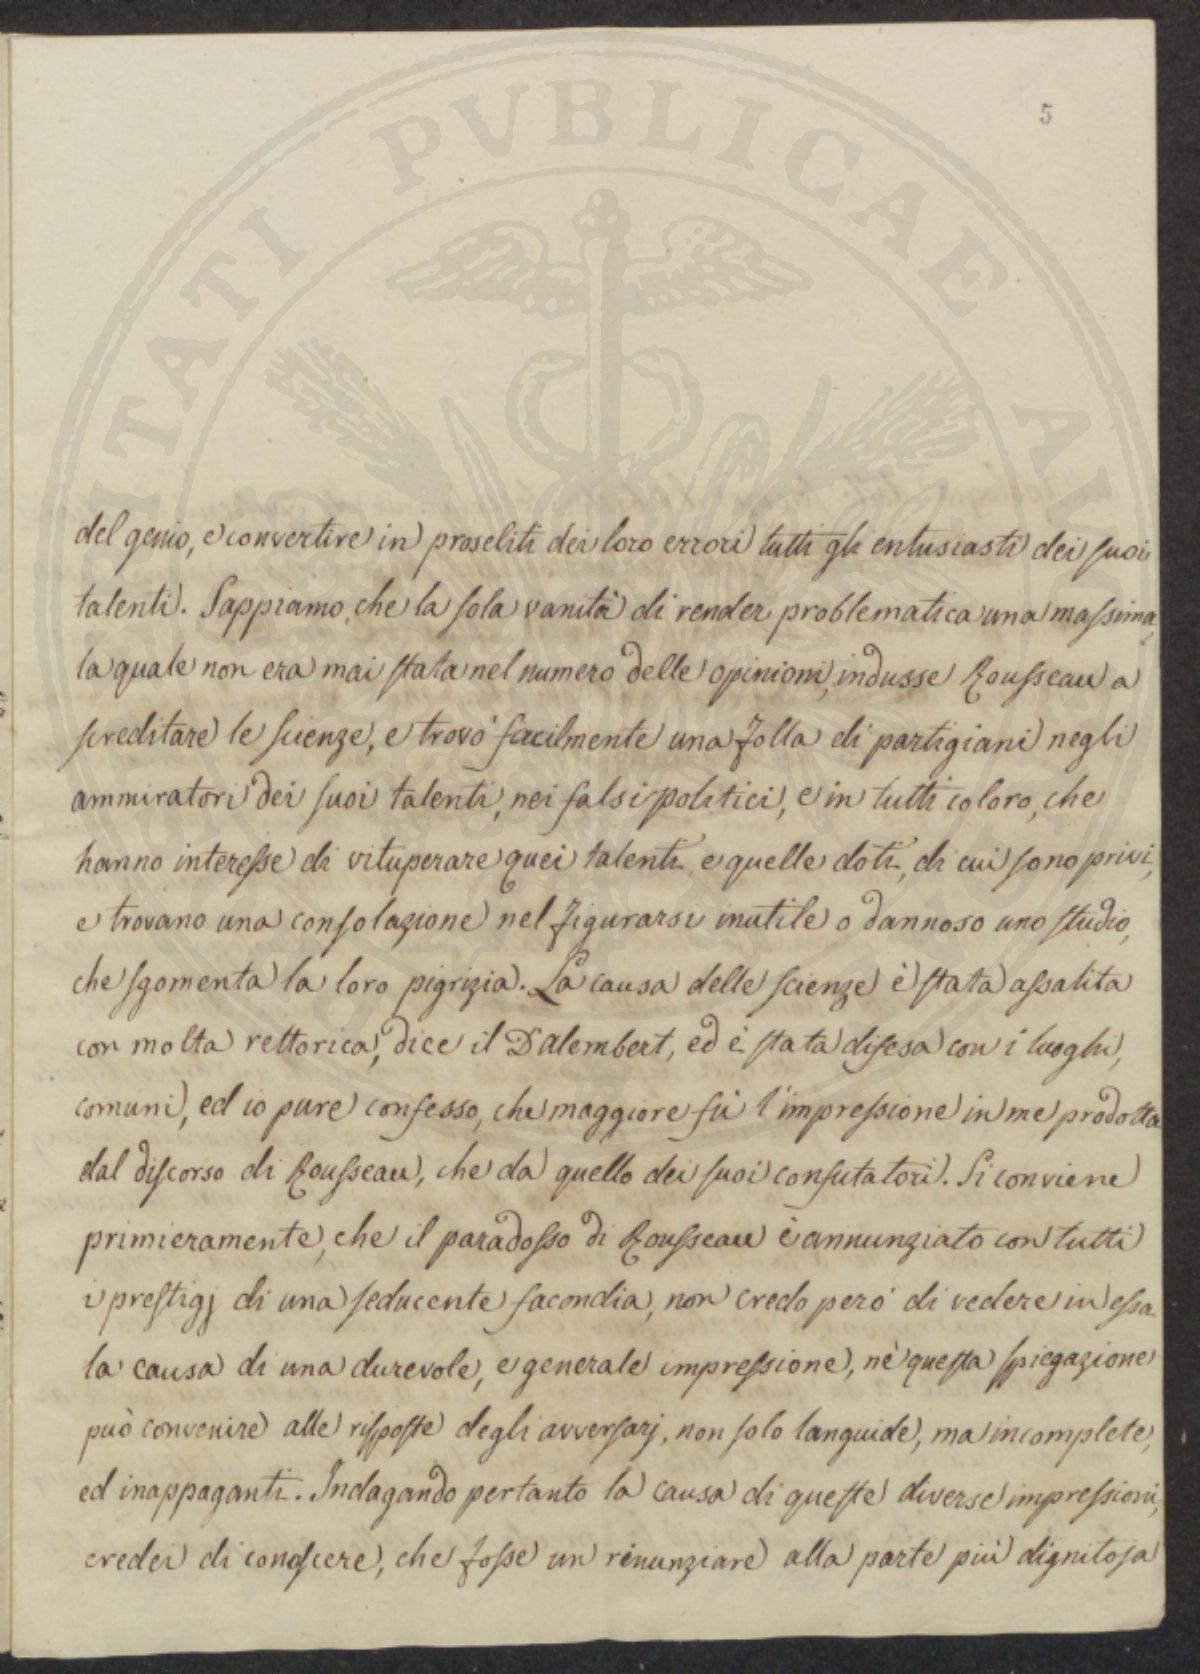 TATI PUBLICAE
5
del genio, e convertire in proseliti dei loro errori tutti gli entusiasti dei suoi
talenti. Sappiamo, che la sola vanità di render problematica una massima,
la quale non era mai stata nel numero delle opinioni, indusse Rousseau a
screditare le scienze, e trovò facilmente una folla di partigiani negli
ammiratori dei suoi talenti, nei falsi politici, e in tutti coloro, che
hanno interesse di vituperare quei talenti e quelle doti, di cui sono privi,
e trovano una consolazione nel figurarsi inutile o dannoso uno studio,
che sgomenta la loro pigrizia. La causa delle scienze è stata assalita
con molta rettorica, dice il D'alembert, ed è stata difesa con i luoghi,
comuni, ed io pure confesso, che maggiore fù l'impressione in me prodotta
dal discorso di Rousseau, che da quello dei suoi confutatori. Si conviene
primieramente, che il paradosso di Rousseau è annunziato con tutti
i prestigj di una seducente facondia, non credo però di vedere in essa
la causa di una durevole, e generale impressione, nè questa spiegazione
può convenire alle risposte degli avversarj, non solo languide, ma incomplete,
ed inappaganti. Indagando pertanto la causa di queste diverse impressioni,
credei di conoscere, che fosse un rinunziare alla parte più dignitosa